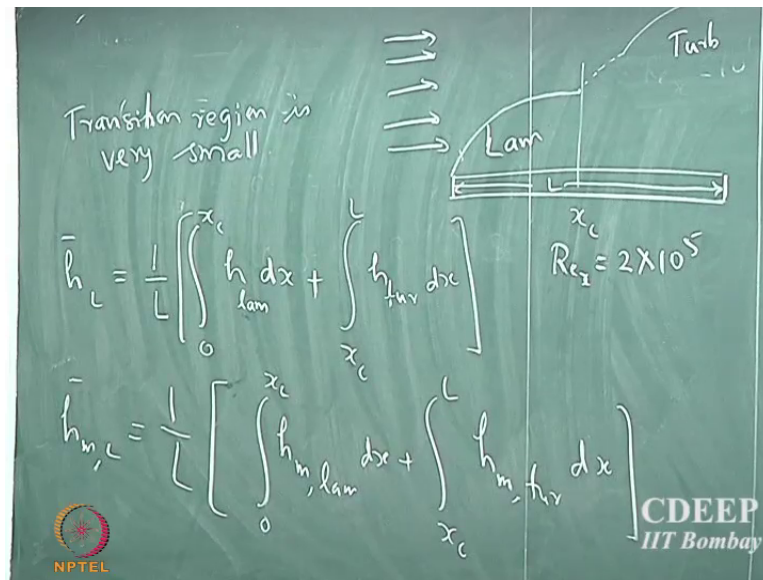 Turb
Transition region is
very small
Lam
L
x_c
Re_x = 2×10^5
h̄_L = 1/L [ ∫_0^{x_c} h_lam dx + ∫_{x_c}^L h_tur dx ]
h̄_{m,L} = 1/L [ ∫_0^{x_c} h_{m,lam} dx + ∫_{x_c}^L h_{m,tur} dx ]
NPTEL
CDEEP
IIT Bombay